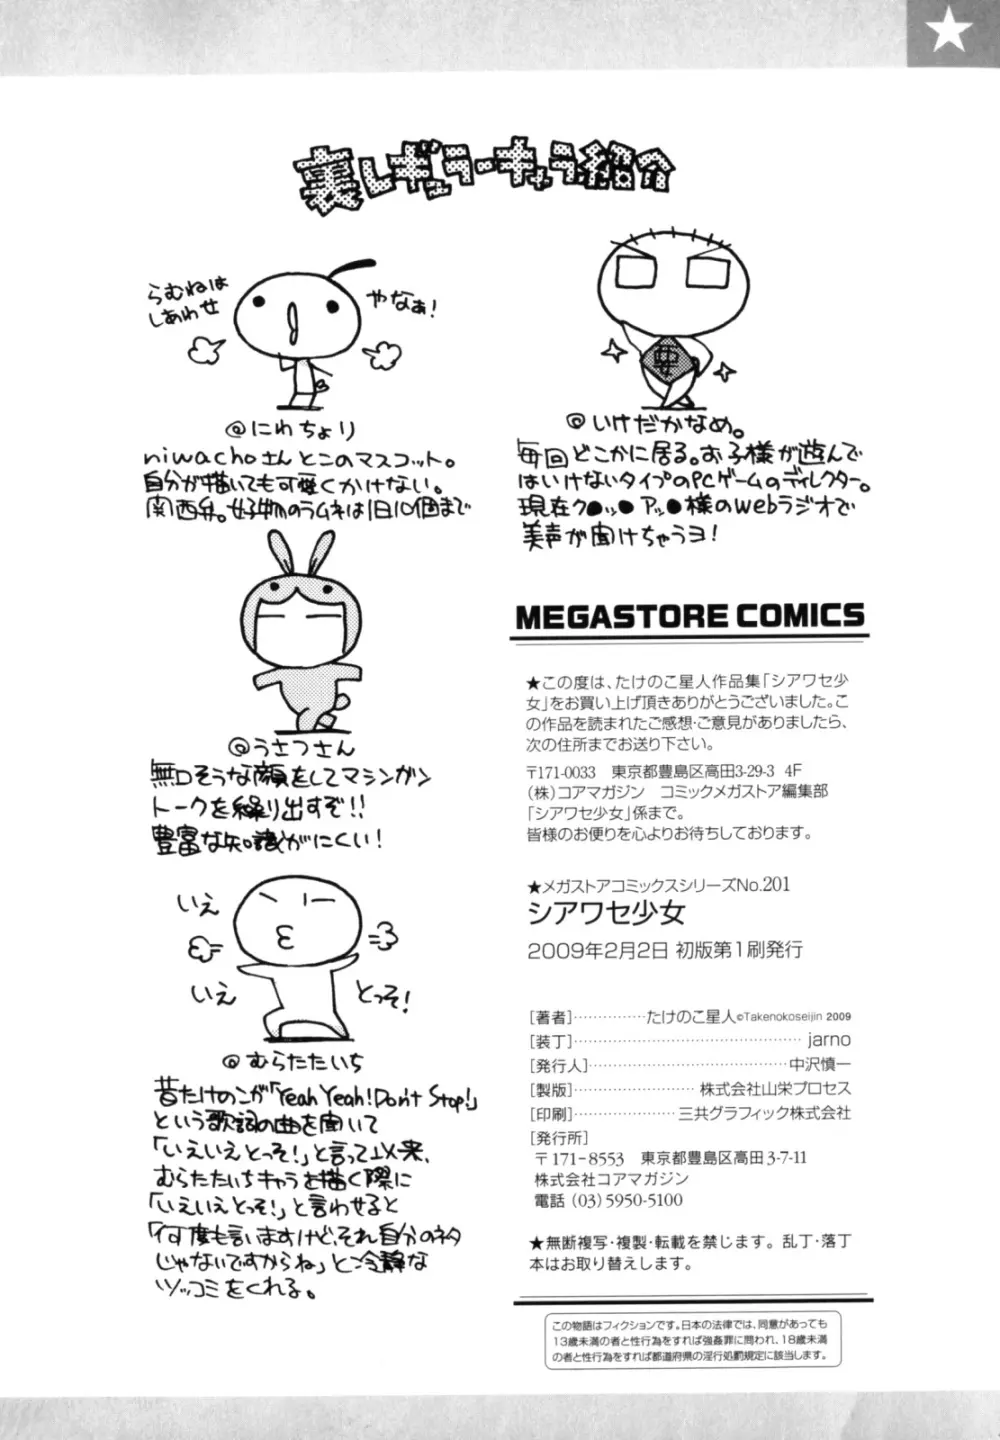 裏レギュラーキャラ紹介
らむねは
しあわせ
やなぁ!
@にわちょり
niwachoさんとこのマスコット。
自分が描いても可愛くかけない。
関西弁。好物のラムネは1日10個まで
@うさつさん
無口そうな顔をしてマシンガン
トークを繰り出すぞ!!
豊富な知識がにくい!
いえ
いえ
とっそ!
@むらたたいち
昔たけのこが「Yeah Yeah!Don't Stop!」
という歌詞の曲を聞いて
「いえいえとっそ!」と言って以来、
むらたたいちキャラを描く際に
「いえいえとっそ!」と言わせると
「何度も言いますけど、それ自分のネタ
じゃないですからね」と冷静な
ツッコミをくれる。
要
@いけだかなめ。
毎回どこかに居る。お子様が遊んで
はいけないタイプのPCゲームのディレクター。
現在ク●ッ●アッ●様のwebラジオで
美声が聞けちゃうヨ!
MEGASTORE COMICS
★この度は、たけのこ星人作品集「シアワセ少
女」をお買い上げ頂きありがとうございました。こ
の作品を読まれたご感想・ご意見がありましたら、
次の住所までお送り下さい。
〒171-0033 東京都豊島区高田3-29-3 4F
(株)コアマガジン コミックメガストア編集部
「シアワセ少女」係まで。
皆様のお便りを心よりお待ちしております。
★メガストアコミックスシリーズNo.201
シアワセ少女
2009年2月2日 初版第1刷発行
[著者]‥‥‥‥‥‥‥たけのこ星人©Takenokoseijin 2009
[装丁]‥‥‥‥‥‥‥‥‥‥‥‥‥‥‥‥‥‥jarno
[発行人]‥‥‥‥‥‥‥‥‥‥‥‥‥‥‥‥中沢慎一
[製版]‥‥‥‥‥‥‥‥‥‥株式会社山栄プロセス
[印刷]‥‥‥‥‥‥‥‥‥三共グラフィック株式会社
[発行所]
〒171-8553 東京都豊島区高田3-7-11
株式会社コアマガジン
電話 (03)5950-5100
★無断複写・複製・転載を禁じます。乱丁・落丁
本はお取り替えします。
この物語はフィクションです。日本の法律では、同意があっても
13歳未満の者と性行為をすれば強姦罪に問われ、18歳未満
の者と性行為をすれば都道府県の淫行処罰規定に該当します。